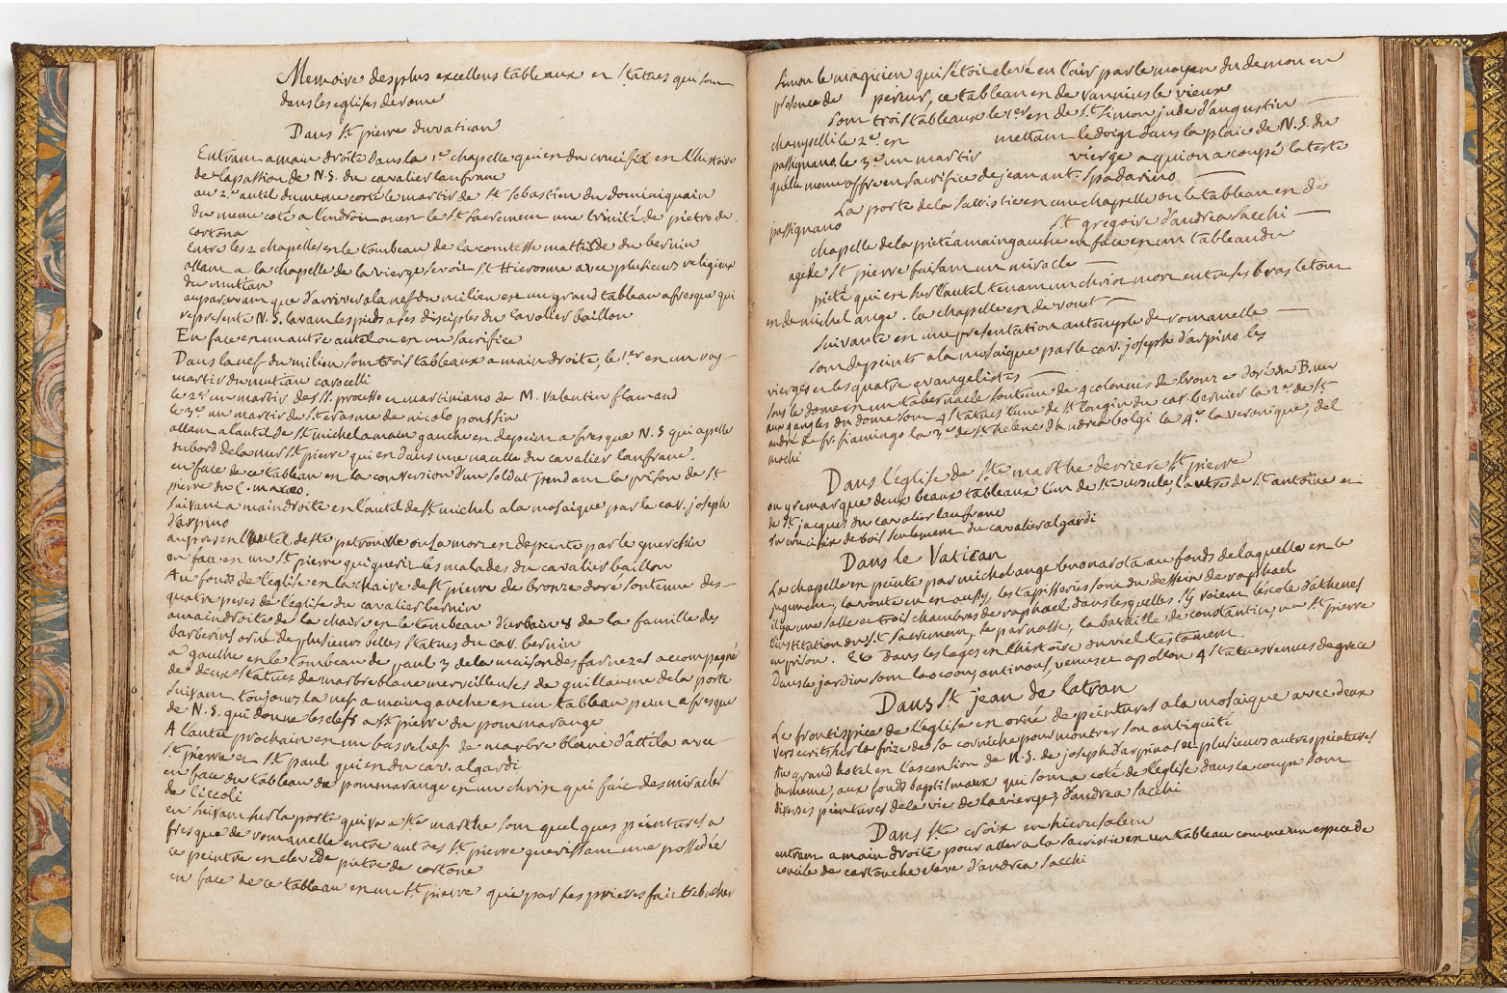 Memoire des plus excellens tableaux et statues qui sont
dans les eglises de rome
Dans St pierre du vatican
Entrant a main droite dans la 1re chapelle qui est du crucifix est l'histoire
de la passion de N.S. du cavalier lanfranc
au 2e autel du meme coté le martir de St sebastien du dominiquain
du meme coté a l'endroit ou est le St sacrement une trinité de pietro de
cortona
Entre les 2 chapelles est le tombeau de la comtesse mattilde du bernin
allant a la chapelle de la vierge se voit St Hierosme avec plusieurs religieux
du mutian
auparavant que d'arriver a la nef du milieu est un grand tableau a fresque qui
represente N.S. lavant les pieds a ses disciples du Cavalier baillon
En face est un autre autel ou est un sacrifice
Dans la nef du milieu sont trois tableaux a main droite, le 1er est un roy
martir du mutian caroselli
le 2e un martir des SS. processo et martiniano de M. Valentin flamand
le 3e un martir de St erasme de nicolo poussin
allant a l'autel de St michel a main gauche est depeint a fresque N.S qui apelle
du bord de la mer St pierre qui est dans une nacelle du cavalier lanfranc.
en face de ce tableau est la conversion d'un soldat pendant la prison de St
pierre du C.
suivant a main droite est l'autel de St michel a la mosaique par le cav. joseph
d'arpino
aupres est l'autel de Ste petronille ou sa mort est depeinte par le guerchin
en face est un St pierre qui guerit les malades du cavalier baillon
Au fonds de l'eglise est la chaire de St pierre de bronze doré soutenue des
quatre peres de l'eglise du cavalier bernin
a main droite de la chaire est le tombeau d'urbain 8 de la famille des
barberins orné de plusieurs belles statues du cav. bernin
a gauche est le tombeau de paul 3 de la maison des farnezes accompagné
de deux statues de marbre blanc merveilleuses de guillaume de la porte
suivant toujours la nef a main gauche est un tableau peint a fresque
de N.S. qui donne les clefs a St pierre du pommarange
A l'autel prochain est un bas relief de marbre blanc d'attila avec
St pierre et St paul qui est du cav. algardi
en face du tableau du pommarange est un christ qui fait des miracles
de
en suivant sur la porte qui va a Ste marthe sont quelques peintures a
fresque de romanelle entre autres St pierre guerissant une possedée
ce peintre est eleve de pietre de cortone
en face de ce tableau est un St pierre qui par ses prieres fait trebucher
simon le magicien qui s'étoit elevé en l'air par le moyen du demon en
presence de ce tableau est de vannius le vieux
sont trois tableaux le 1er est de St simon jude d'augustin
le 2e est mettant le doigt dans la plaie de N.S. du
passignano le 3e un martir vierge a qui on a coupé la teste
qu'elle meme offre en sacrifice de jean ant. spadarino
La porte de la sacristie est une chapelle ou le tableau est de
passignano St gregoire d'andrea sacchi
chapelle de la pieté a main gauche en face est un tableau du
St pierre faisant un miracle
pieté qui est sur l'autel tenant un christ mort entre ses bras le tout
est de michel ange. la chapelle est de vouet
suivante est une presentation au temple de romanelle
sont depeints a la mosaique par le cav. joseph d'arpino les
vierges et les quatre evangelistes
sous le dome est un tabernacle soutenu de 4 colonnes de bronze doré du B.
aux 4 angles du dome sont 4 statues l'une de St longin du cav. bernier la 2e de St
andré de fr. fiamingo la 3e de Ste helene d'andrea bolgi la 4e la veronique, del
mochi
Dans l'église de Ste marthe derriere St pierre
on y remarque deux beaux tableaux l'un de Ste ursule, l'autre de St antoine et
de St jacques du cavalier lanfranc
un crucifix de bois seulement du cavalier algardi
Dans le Vatican
La chapelle est peinte par michel ange buonarota au fonds de laquelle est le
jugement, la voute en est aussy, les tapisseries sont du dessein de raphael
il y a une salle et trois chambres de raphael dans lesquelles s'y voient l'école d'athenes
l'institution du St sacrement, le parnasse, la bataille de constantin, un St pierre
en prison. Et dans les loges est l'histoire du vieil testament.
Dans le jardin sont laocoon, antinous, venus et apollon 4 statues venues de grece
Dans St jean de latran
Le frontispice de l'eglise est orné de peintures a la mosaique avec deux
vers ecrits sur la frize de sa corniche pour montrer son antiquité
au grand hotel est l'ascension de N.S. de joseph d'arpinas et plusieurs autres peintures
du meme, aux fonds baptismaux qui sont a coté de l'eglise dans la coupe sont
diverses peintures de la vie de la vierge, d'andrea sacchi
Dans Ste croix en hierusalem
entrant a main droite pour aller a la sacristie est un tableau comme un espece de
concile de cartouche eleve d'andrea sacchi